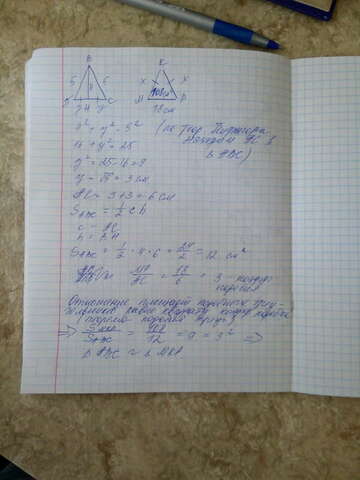 B
5 5
4
D y H y C
K
x x
108 см²
M P
18 см
y² + 4² = 5² (по теор Пифагора
находим AC в
Δ ABC)
16 + y² = 25
y² = 25 - 16 = 9
y = √9 = 3 см
AC = 3 + 3 = 6 см
S ABC = 1/2 c.h
c = AC
h = BH
S ABC = 1/2 · 4 · 6 = 24/2 = 12 см²
MP/AC = 18/6 = 3 - коэф.
подобия
Отношение площадей подобных треу-
гольников равно квадрату коэф подобия
(теорема подобия треуг)
=> S MKP / S ABC = 108/12 = 9 = 3² =>
Δ ABC ~ Δ MKP